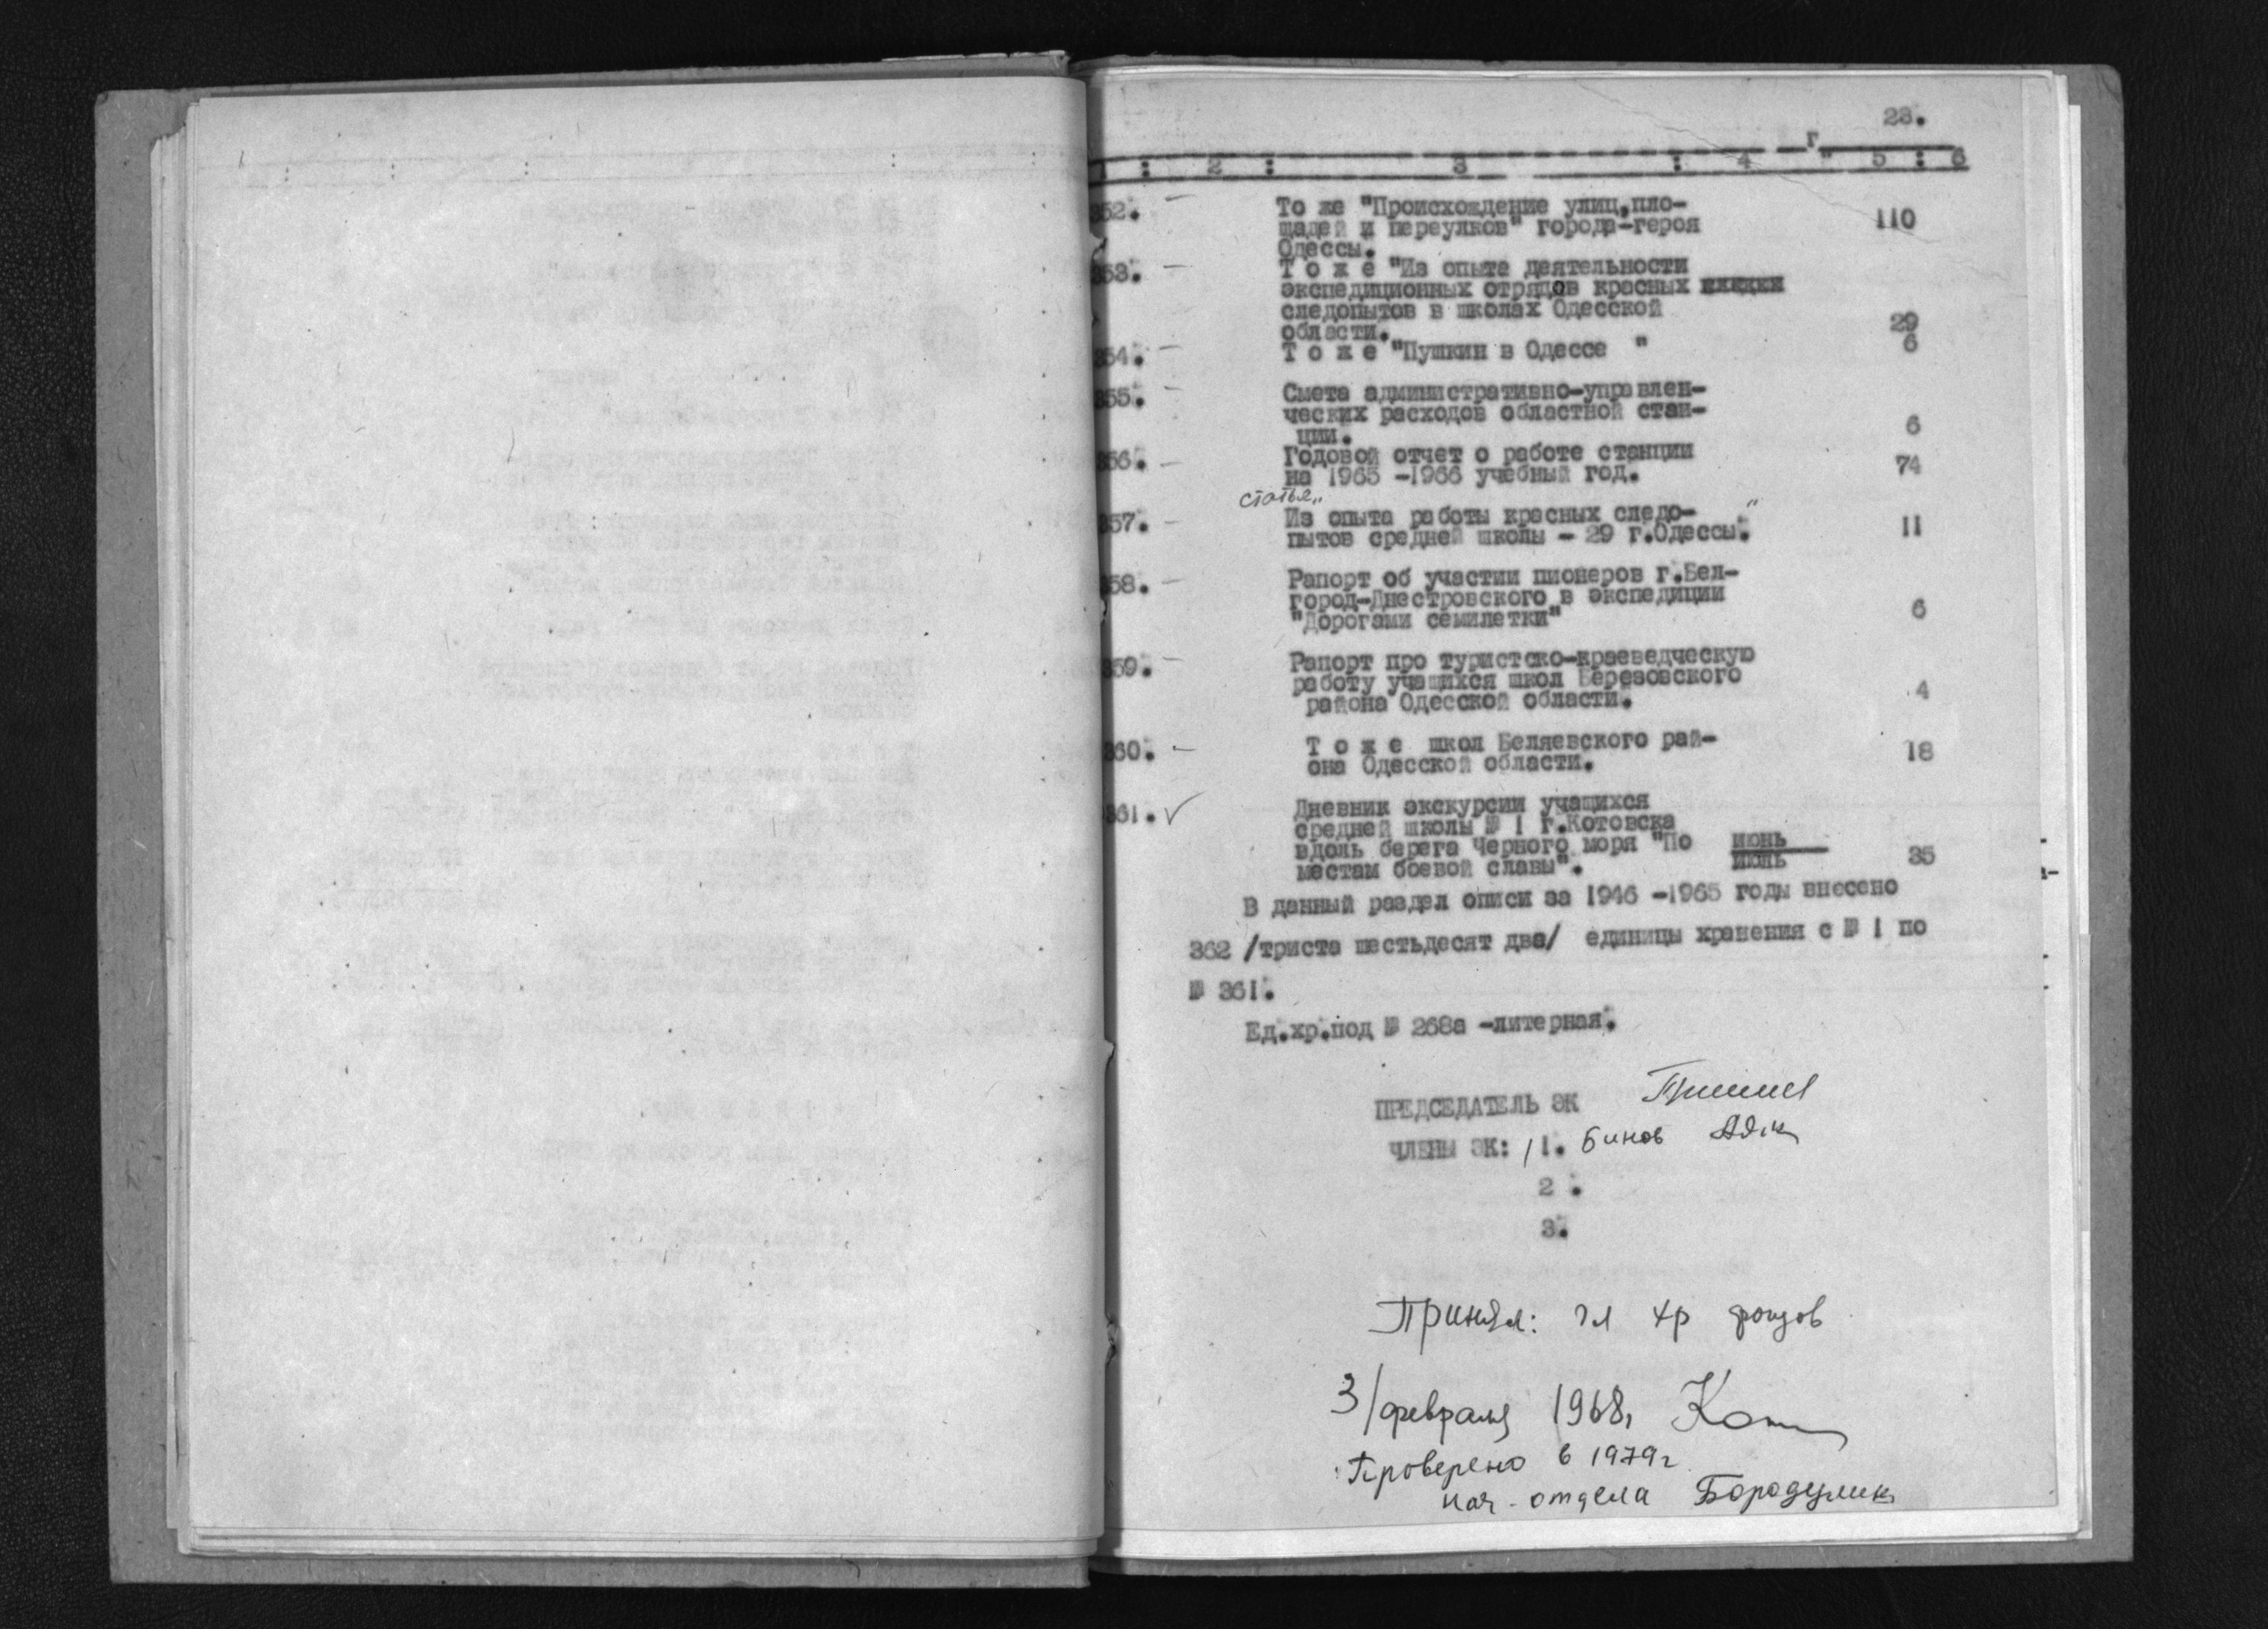 23.
г
: 2 : 3 : 4 " 5 : 6
352. — То же "Происхождение улиц,пло-
щадей и переулков" города-героя 110
Одессы.
353. — Т о ж е "Из опыта деятельности
экспедиционных отрядов красных
следопытов в школах Одесской
области. 29
354. — Т о ж е "Пушкин в Одессе " 6
355. — Смета административно-управлен-
ческих расходов областной стан-
ции. 6
356. — Годовой отчет о работе станции
на 1965 -1966 учебный год. 74
статья „
357. — Из опыта работы красных следо- "
пытов средней школы - 29 г.Одессы. 11
358. — Рапорт об участии пионеров г.Бел-
город-Днестровского в экспедиции
"Дорогами семилетки" 6
359. — Рапорт про туристско-краеведческую
работу учащихся школ Березовского
района Одесской области. 4
360. — Т о ж е школ Беляевского рай-
она Одесской области. 18
361. ✓ Дневник экскурсии учащихся
средней школы № 1 г.Котовска
вдоль берега Черного моря "По июнь
местам боевой славы". июнь 35
В данный раздел описи за 1946 -1965 годы внесено
362 /триста шестьдесят два/ единицы хранения с № 1 по
№ 361.
Ед.хр.под № 268а -литерная.
ПРЕДСЕДАТЕЛЬ ЭК
ЧЛЕНЫ ЭК: 1.
2 .
3.
Принял: гл хр фондов
3/февраля 1968,
Проверено в 1979г
нач. отдела Бородулин